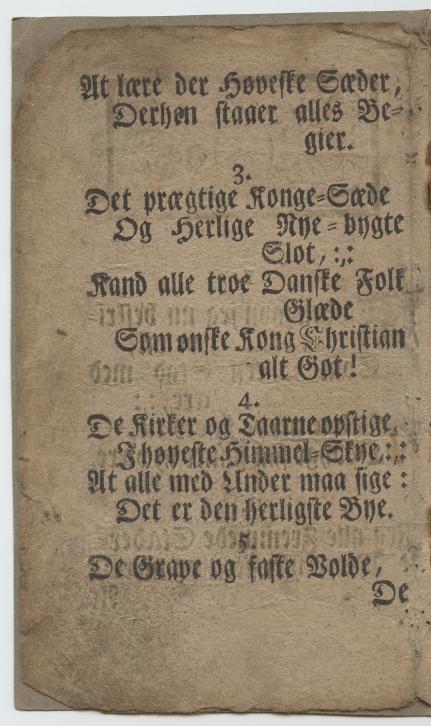 At lære der Høveske Sæder,
Derhen staaer alles Be-
gier.
3.
Det prægtige Konge-Sæde
Og Herlige Nye-bygte
Slot, :,:
Kand alle troe Danske Folk
Glæde
Som ønske Kong Christian
alt Got!
4.
De Kirker og Taarne opstige,
J høyeste Himmel-Skye, :,:
At alle med Under maa sige :
Det er den herligste Bye.
5.
De Grave og faste Volde,
De